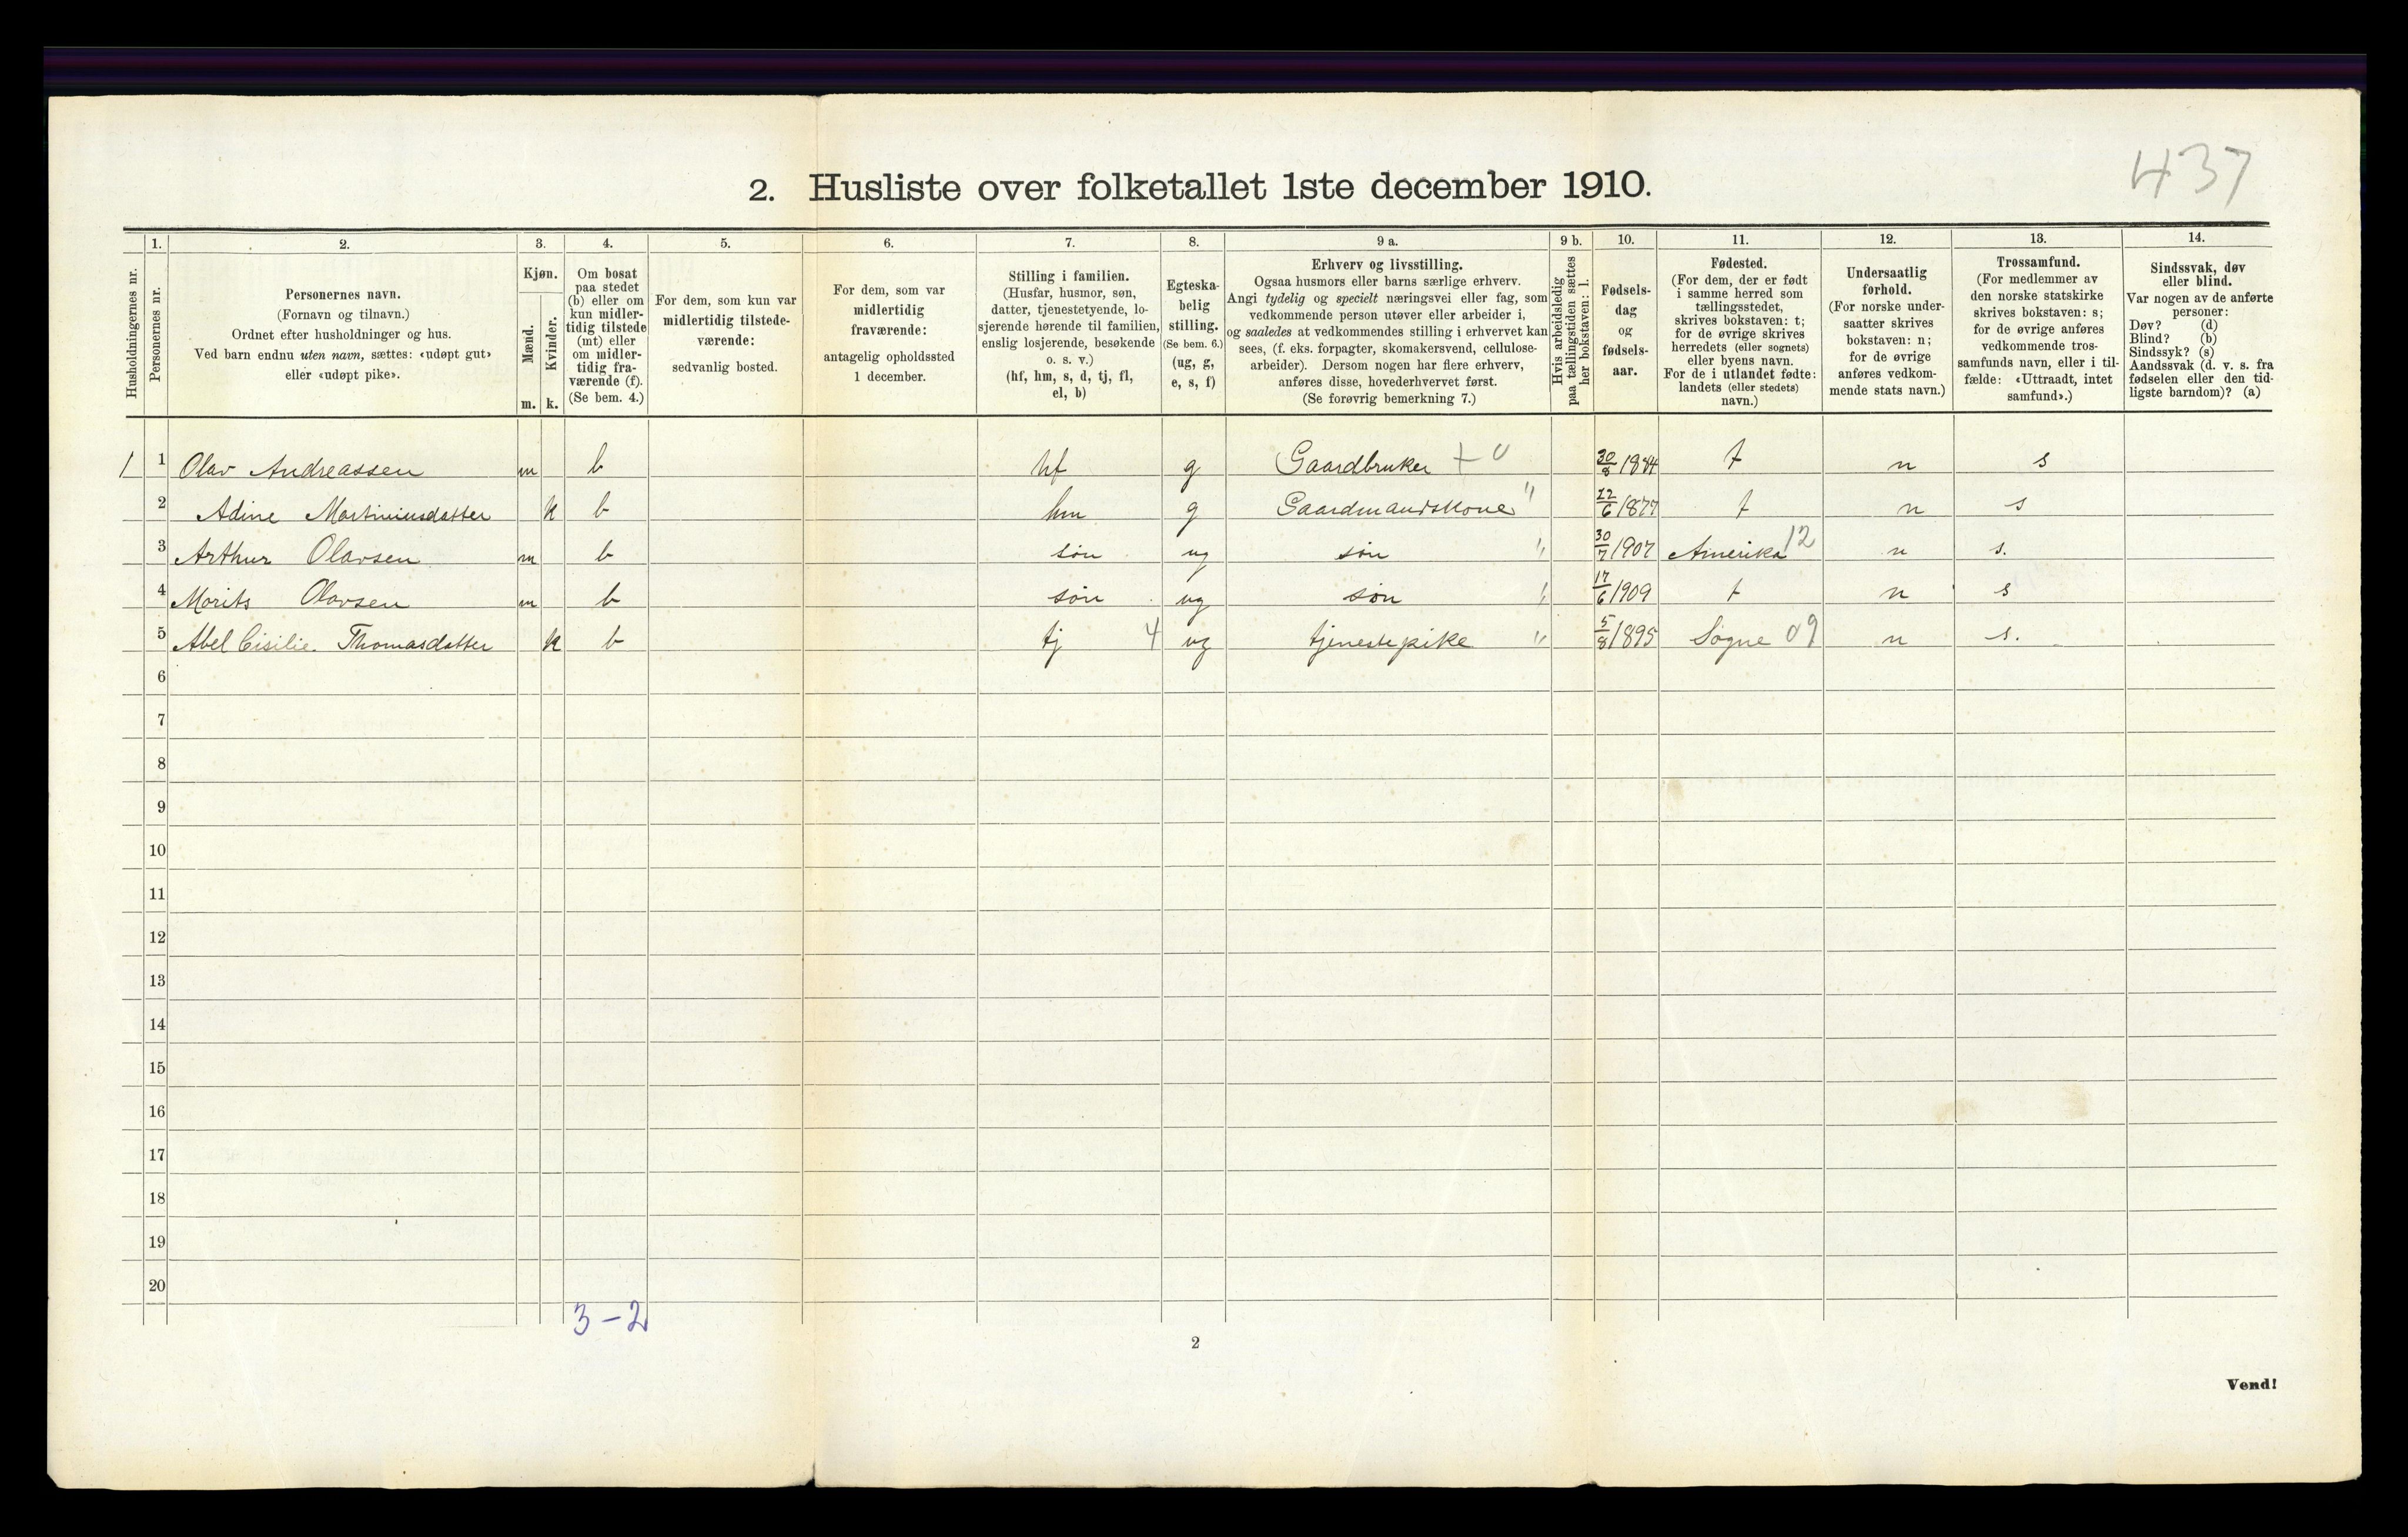 437
2. Husliste over folketallet 1ste december 1910.
Husholdningernes nr.
1.
Personernes nr.
2.
Personernes navn.
(Fornavn og tilnavn.)
Ordnet efter husholdninger og hus.
Ved barn endnu uten navn, sættes: «udøpt gut»
eller «udøpt pike».
3.
Kjøn.
Mænd.
Kvinder.
m. k.
4.
Om bosat
paa stedet
(b) eller om
kun midler-
tidig tilstede
(mt) eller
om midler-
tidig fra-
værende (f).
(Se bem. 4.)
5.
For dem, som kun var
midlertidig tilstede-
værende:
sedvanlig bosted.
6.
For dem, som var
midlertidig
fraværende:
antagelig opholdssted
1 december.
7.
Stilling i familien.
(Husfar, husmor, søn,
datter, tjenestetyende, lo-
sjerende hørende til familien,
enslig losjerende, besøkende
o. s. v.)
(hf, hm, s, d, tj, fl,
el, b)
8.
Egteska-
belig
stilling.
(Se bem. 6.)
(ug, g,
e, s, f)
9 a.
Erhverv og livsstilling.
Ogsaa husmors eller barns særlige erhverv.
Angi tydelig og specielt næringsvei eller fag, som
vedkommende person utøver eller arbeider i,
og saaledes at vedkommendes stilling i erhvervet kan
sees, (f. eks. forpagter, skomakersvend, cellulose-
arbeider). Dersom nogen har flere erhverv,
anføres disse, hovederhvervet først.
(Se forøvrig bemerkning 7.)
9 b.
Hvis arbeidsledig
paa tællingstiden sættes
her bokstaven: l.
10.
Fødsels-
dag
og
fødsels-
aar.
11.
Fødested.
(For dem, der er født
i samme herred som
tællingsstedet,
skrives bokstaven: t;
for de øvrige skrives
herredets (eller sognets)
eller byens navn.
For de i utlandet fødte:
landets (eller stedets)
navn.)
12.
Undersaatlig
forhold.
(For norske under-
saatter skrives
bokstaven: n;
for de øvrige
anføres vedkom-
mende stats navn.)
13.
Trossamfund.
(For medlemmer av
den norske statskirke
skrives bokstaven: s;
for de øvrige anføres
vedkommende tros-
samfunds navn, eller i til-
fælde: «Uttraadt, intet
samfund».)
14.
Sindssvak, døv
eller blind.
Var nogen av de anførte
personer:
Døv? (d)
Blind? (b)
Sindssyk? (s)
Aandssvak (d. v. s. fra
fødselen eller den tid-
ligste barndom)? (a)
1 1 Olav Andreassen m b hf g Gaardbruker + 0 30/8 t n s
2 Adine Martiniusdatter k b hm g Gaardmandskone " 22/6 1877 t n s
3 Arthur Olavsen m b søn ug søn " 30/7 1907 Amerika 12 n s.
4 Morits Olavsen m b søn ug søn " 17/6 1909 t n s
5 Abel Cisilie Thomasdatter k b tj 4 ug tjenestepike " 5/8 1895 Søgne 09 n s.
6
7
8
9
10
11
12
13
14
15
16
17
18
19
20
3-2
2
Vend!